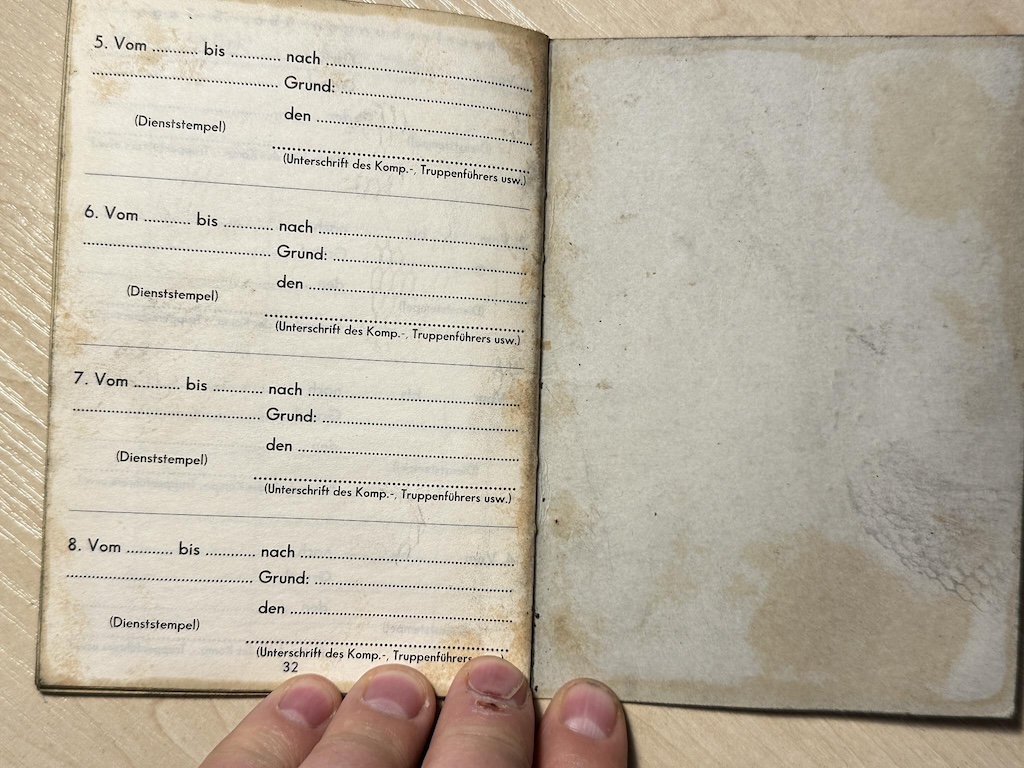 5. Vom .......... bis .......... nach ..............................
.............................. Grund: ..............................
den ..............................
(Dienststempel)
..............................
(Unterschrift des Komp.-, Truppenführers usw.)
6. Vom .......... bis .......... nach ..............................
.............................. Grund: ..............................
den ..............................
(Dienststempel)
..............................
(Unterschrift des Komp.-, Truppenführers usw.)
7. Vom .......... bis .......... nach ..............................
.............................. Grund: ..............................
den ..............................
(Dienststempel)
..............................
(Unterschrift des Komp.-, Truppenführers usw.)
8. Vom .......... bis .......... nach ..............................
.............................. Grund: ..............................
den ..............................
(Dienststempel)
..............................
(Unterschrift des Komp.-, Truppenführers
32